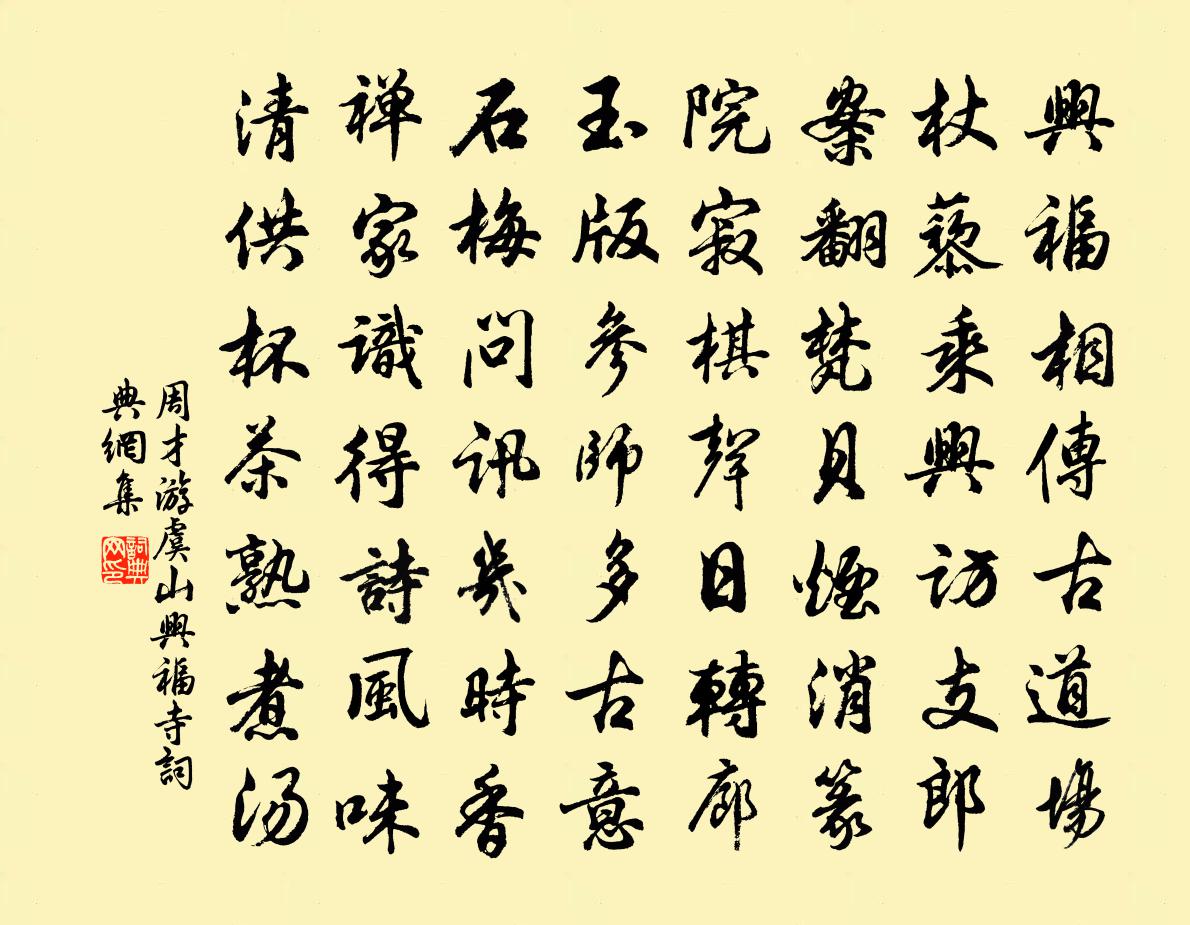 興福相傳古道場
杖藜乘興訪支郎
案翻梵貝煙消篆
院寂棋聲日轉廊
玉版參師多古意
石梅問訊幾時香
禅家識得詩風味
清供杯茶熟煮汤
周才游虞山興福寺詞
典網集
詞典
网印